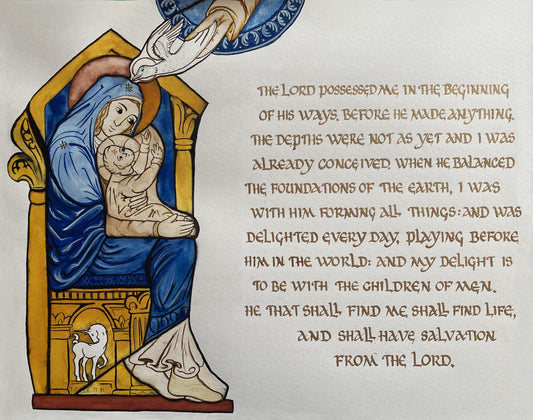 THE LORD POSSESSED ME IN THE BEGINNING
OF HIS WAYS, BEFORE HE MADE ANYTHING.
THE DEPTHS WERE NOT AS YET AND I WAS
ALREADY CONCEIVED, WHEN HE BALANCED
THE FOUNDATIONS OF THE EARTH, I WAS
WITH HIM FORMING ALL THINGS: AND WAS
DELIGHTED EVERY DAY, PLAYING BEFORE
HIM IN THE WORLD: AND MY DELIGHT IS
TO BE WITH THE CHILDREN OF MEN.
HE THAT SHALL FIND ME SHALL FIND LIFE,
AND SHALL HAVE SALVATION
FROM THE LORD.